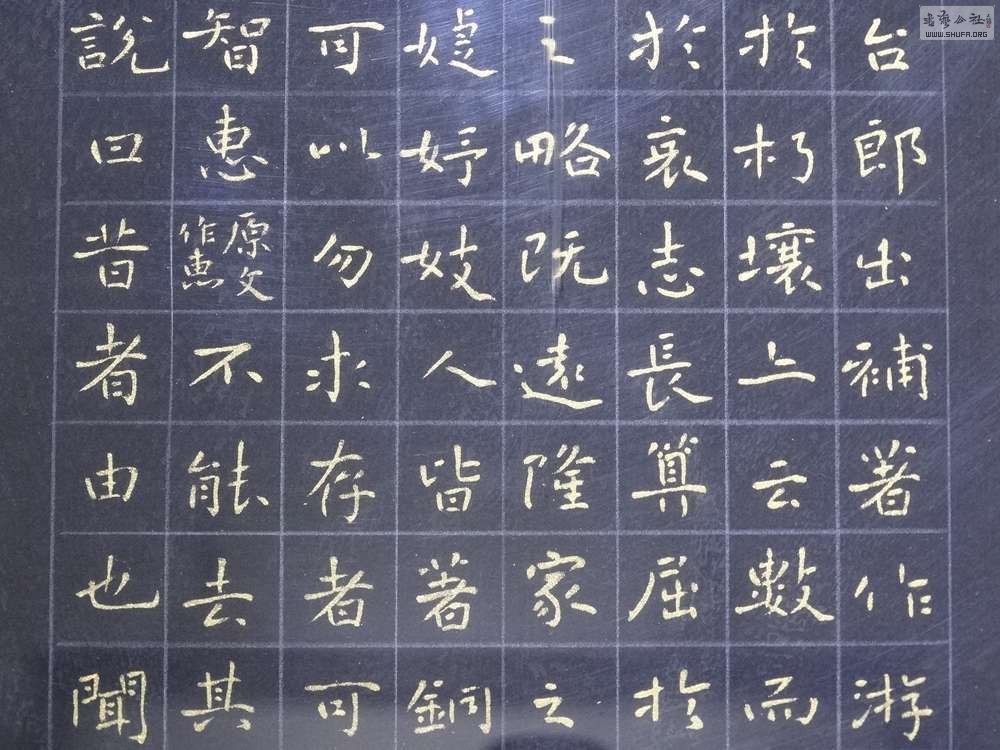 台郎出補著作游
於朽壤上云數而
於哀志長算屈於
之略既遠隆家之
婕妤妓人皆著銅
可以勿求存者可
智惠原文作恵不能去其
說曰昔者由也聞
書藝公社
WWW.SHUFA.ORG